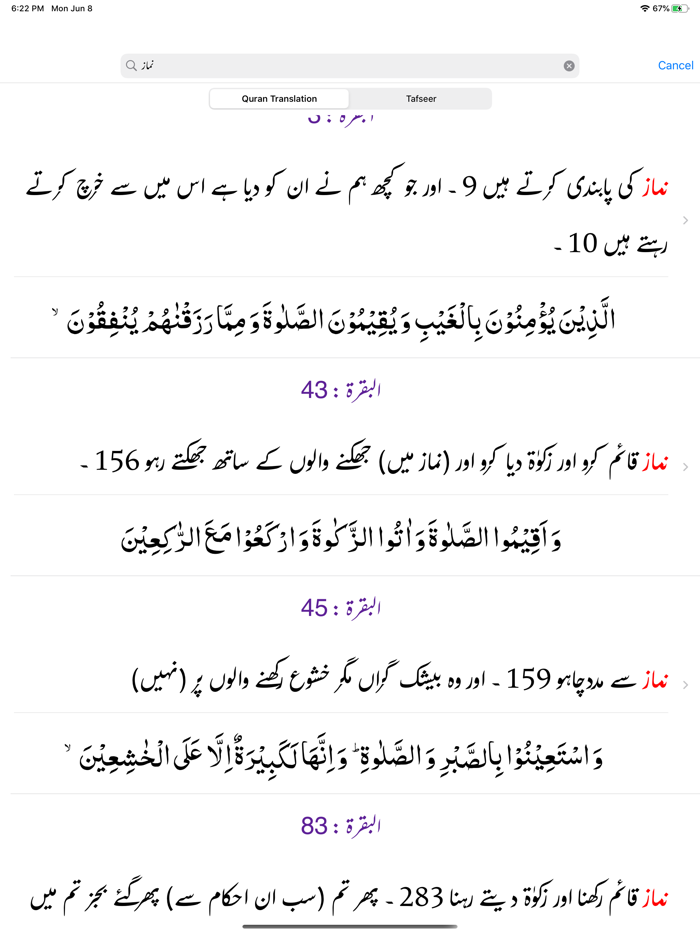 6:22 PM Mon Jun 8
67%
نماز
Cancel
Quran Translation
Tafseer
البقرة : 3
نماز کی پابندی کرتے ہیں 9 ۔ اور جو کچھ ہم نے ان کو دیا ہے اس میں سے خرچ کرتے
رہتے ہیں 10 ۔
الَّذِيْنَ يُؤْمِنُوْنَ بِالْغَيْبِ وَيُقِيْمُوْنَ الصَّلٰوةَ وَمِمَّا رَزَقْنٰهُمْ يُنْفِقُوْنَ ۙ
البقرة : 43
نماز قائم کرو اور زکوٰۃ دیا کرو اور (نماز میں) جھکنے والوں کے ساتھ جھکتے رہو 156 ۔
وَاَقِيْمُوا الصَّلٰوةَ وَاٰتُوا الزَّكٰوةَ وَارْكَعُوْا مَعَ الرّٰكِعِيْنَ
البقرة : 45
نماز سے مددچاہو 159 ۔ اور وہ بیشک گراں مگر خشوع رکھنے والوں پر (نہیں)
وَاسْتَعِيْنُوْا بِالصَّبْرِ وَالصَّلٰوةِ ؕ وَاِنَّهَا لَكَبِيْرَةٌ اِلَّا عَلَى الْخٰشِعِيْنَ ۙ
البقرة : 83
نماز قائم رکھنا اور زکوٰۃ دیتے رہنا 283 ۔ پھر تم (سب ان احکام سے) پھرگئے بجز تم میں